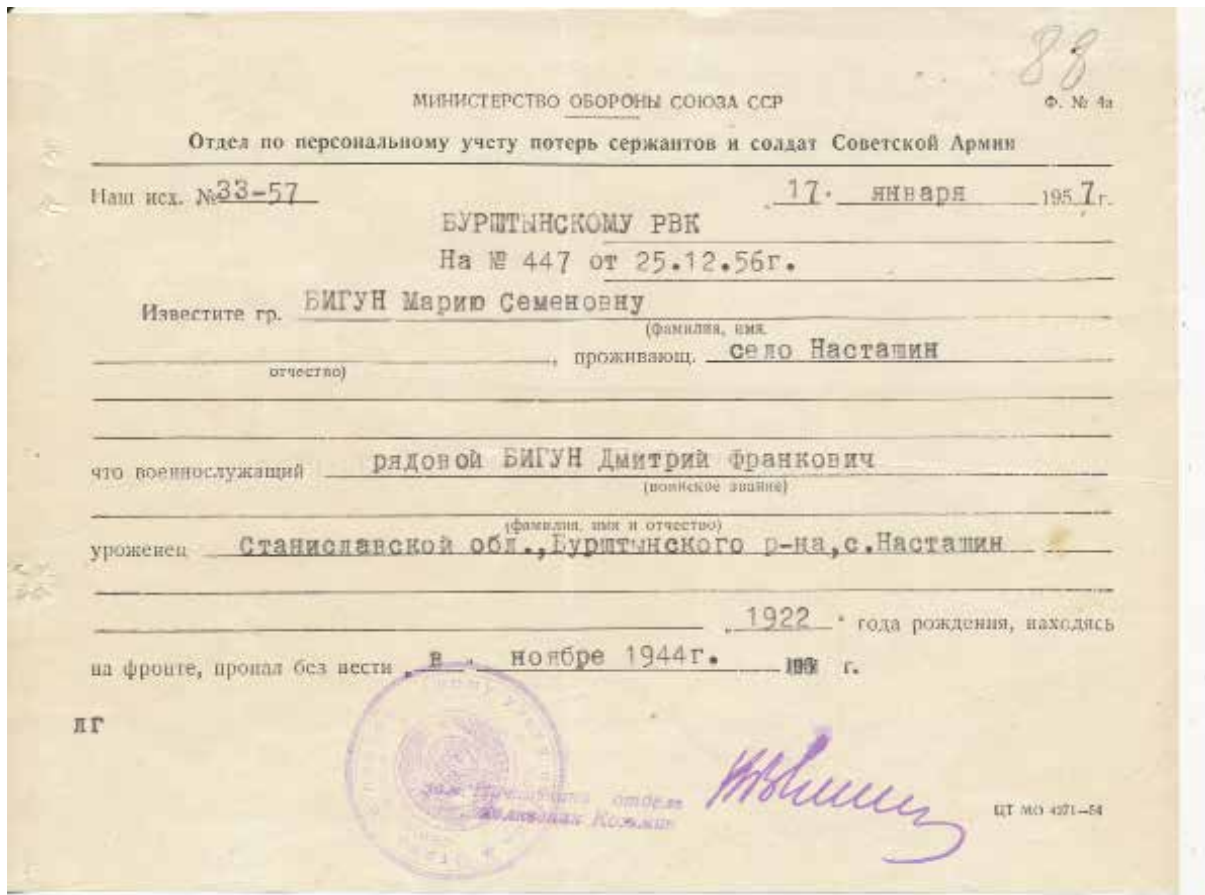 88
МИНИСТЕРСТВО ОБОРОНЫ СОЮЗА ССР
Ф. № 4а
Отдел по персональному учету потерь сержантов и солдат Советской Армии
Наш исх. № 33-57 17. января 1957г.
БУРШТЫНСКОМУ РВК
На № 447 от 25.12.56г.
Известите гр. БИГУН Марию Семеновну
(фамилия, имя,
, проживающ. село Насташин
отчество)
что военнослужащий рядовой БИГУН Дмитрий Франкович
(воинское звание)
(фамилия, имя и отчество)
уроженец Станиславской обл.,Бурштынского р-на,с.Насташин
1922 года рождения, находясь
на фронте, пропал без вести в ноябре 1944г. г.
ЛГ
зам. Начальника отдела
Полковник
ЦТ МО 4271—54